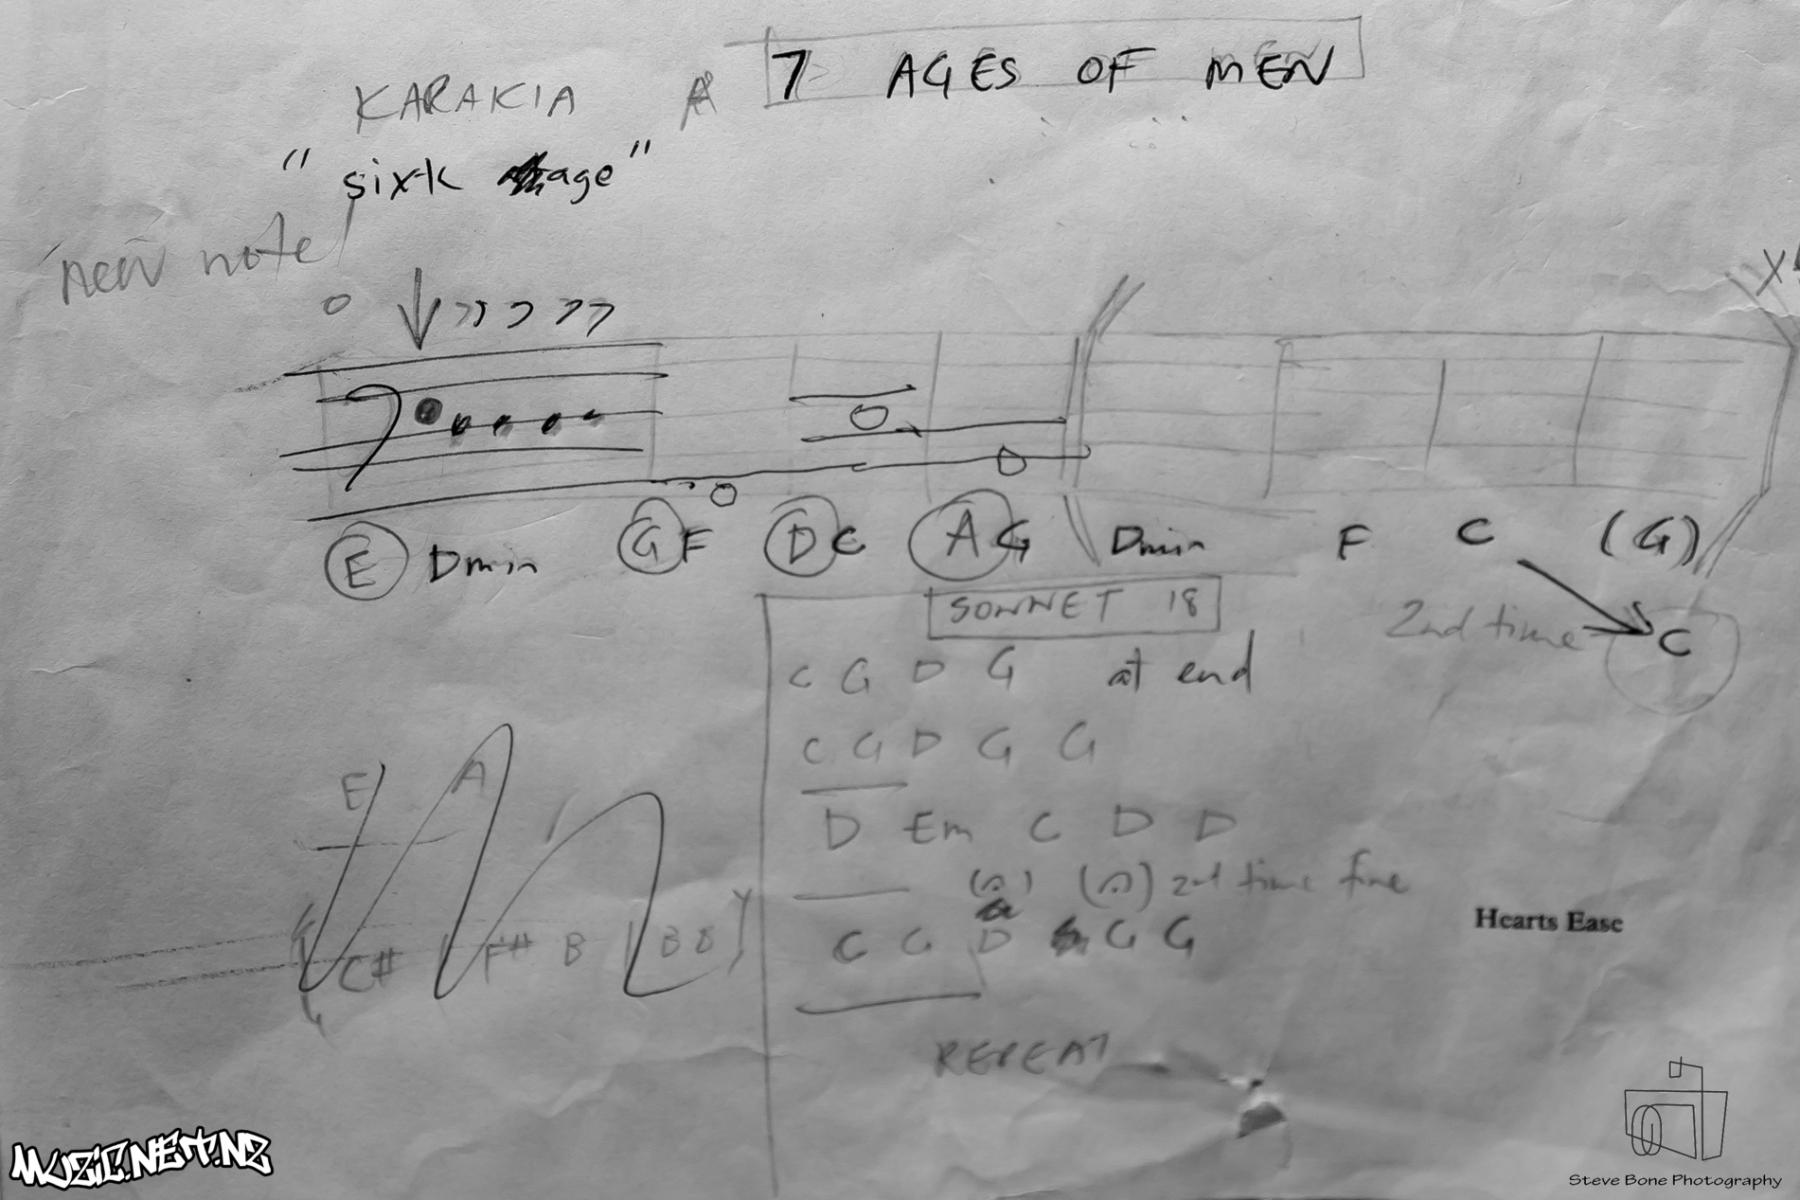 7 AGES OF MEN
KARAKIA A
"sixk age"
new note
E Dmin G F D C A G Dmin F C (G)
2nd time C
SONNET 18
C G D G at end
C G D G G
D Em C D D
2nd time fine
C G D G G
REPEAT
E A
C# F# B B B
Hearts Ease
MUZIC.NET.NZ
Steve Bone Photography